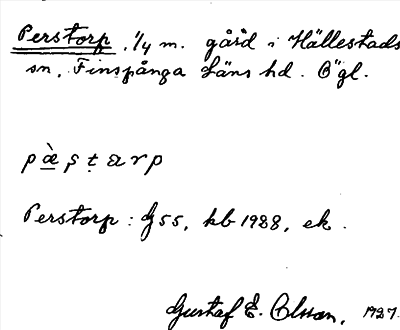 Perstorp, 1/4 m. gård i Hällestads
sn, Finspånga läns hd. Ögl.
pæ̀ṣṭarp
Perstorp: G 55, kb 1988, ek.
Gustaf E. Olsson, 1927.